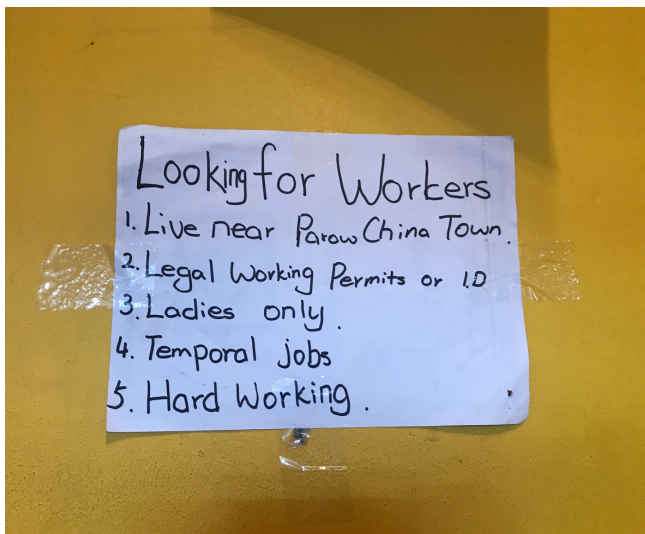 Looking for Workers
1. Live near Parow China Town.
2. Legal Working Permits or I.D
3. Ladies only.
4. Temporal jobs
5. Hard Working.